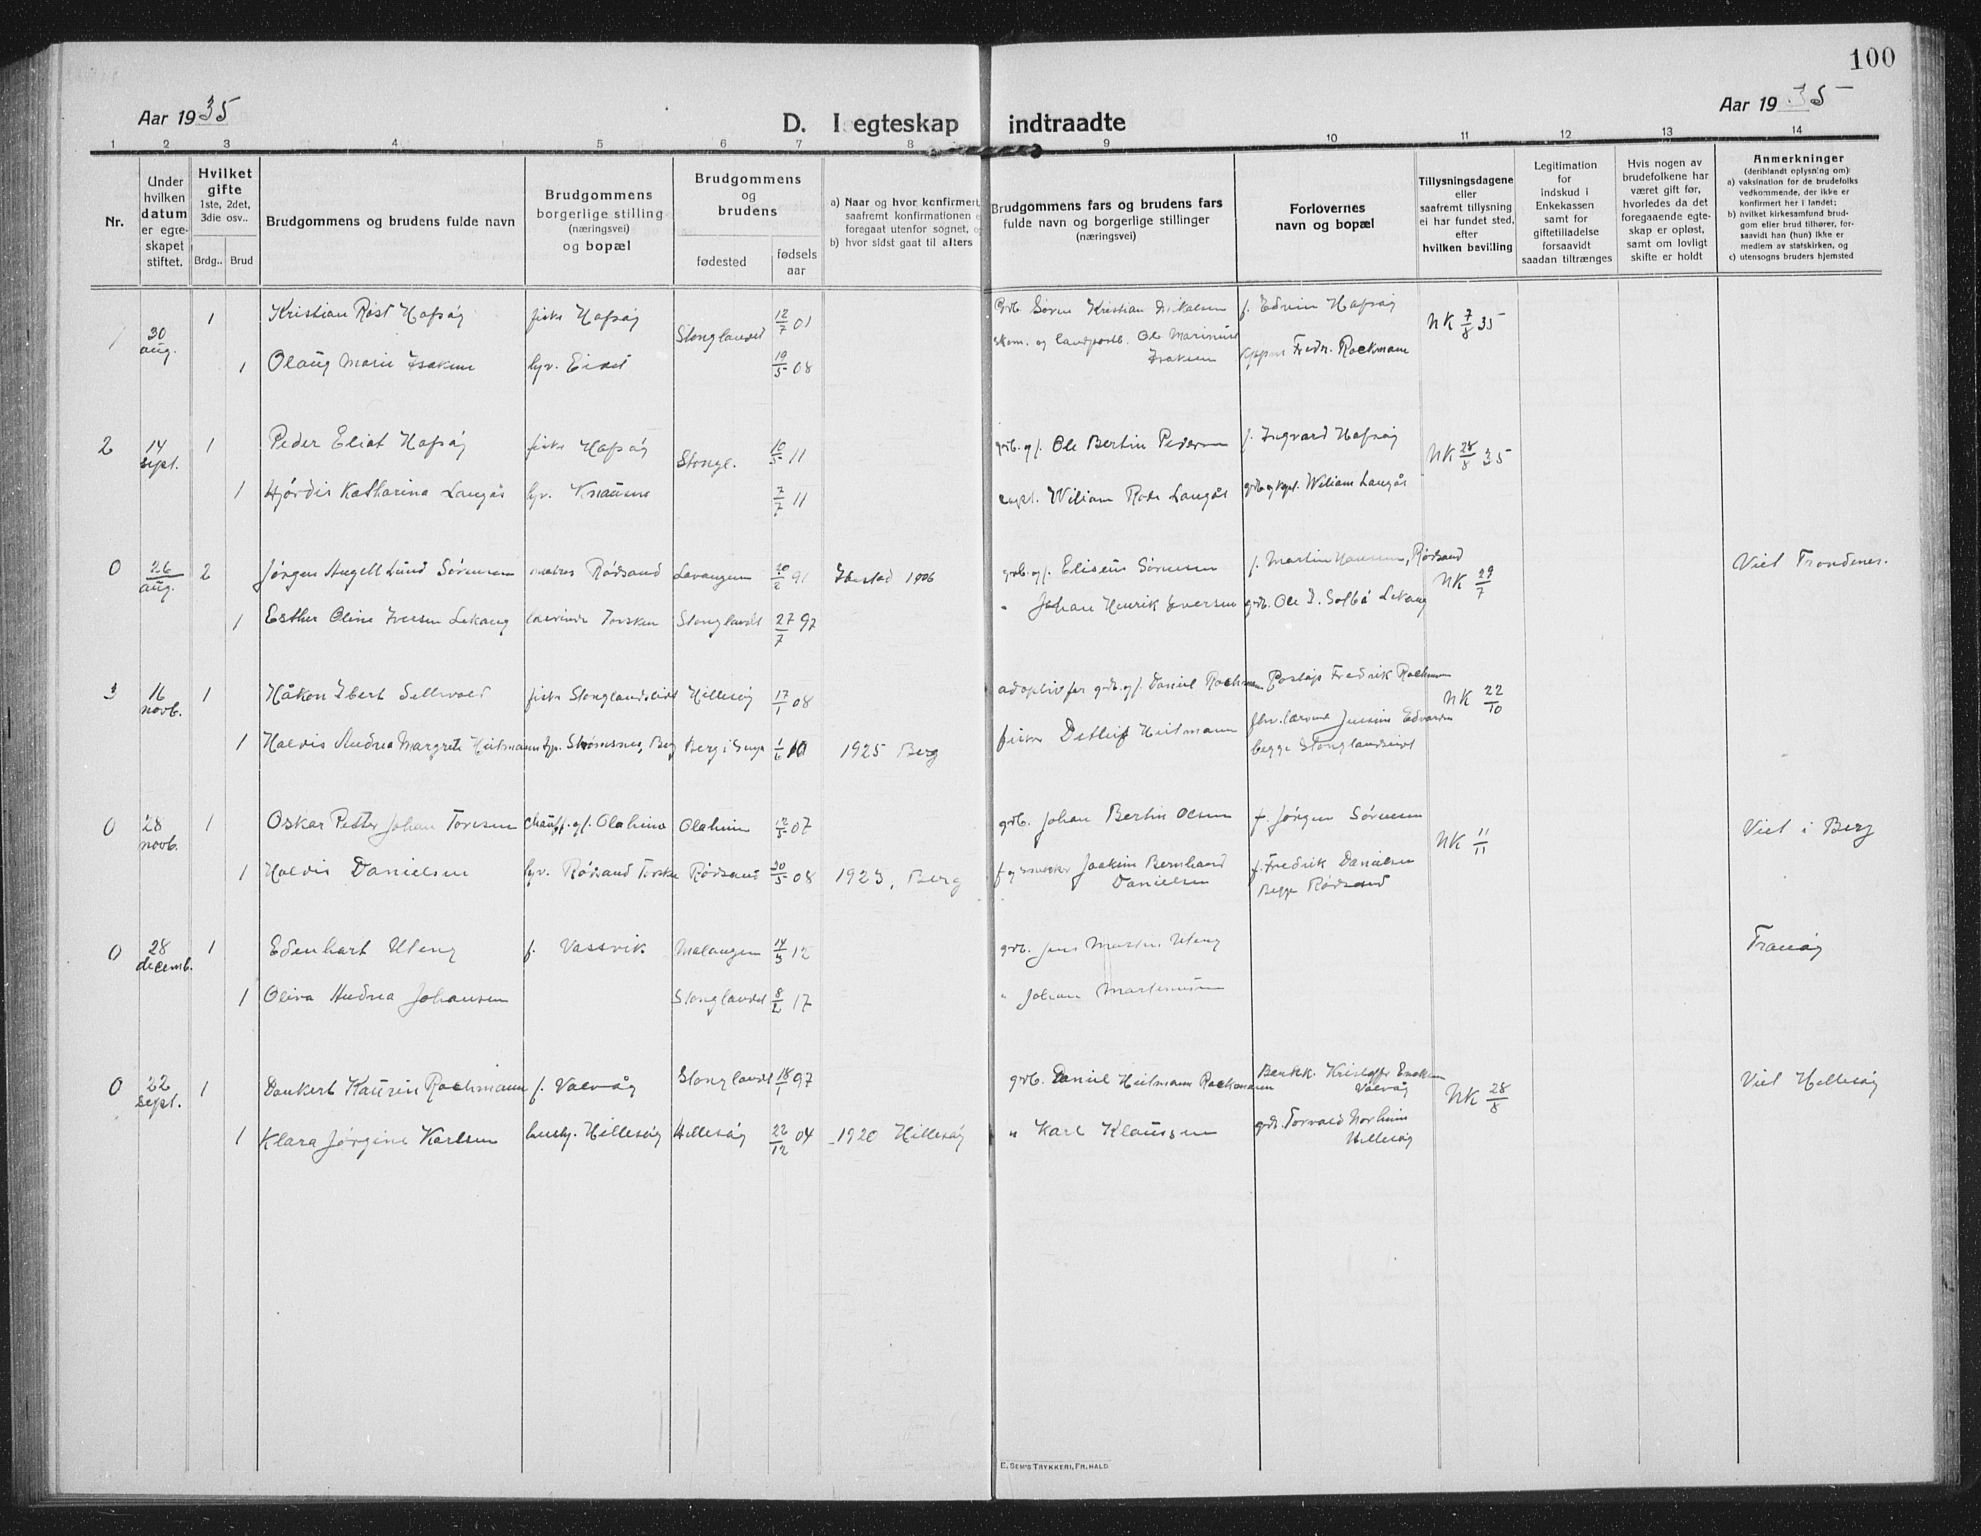 100
Aar 1935
D. I egteskap indtraadte
Aar 1935
1 2 3 4 5 6 7 8 9 10 11 12 13 14
Nr.
Under hvilken datum er egteskapet stiftet.
Hvilket gifte 1ste, 2det, 3die osv..
Brdg.. Brud
Brudgommens og brudens fulde navn
Brudgommens borgerlige stilling (næringsvei) og bopæl
Brudgommens og brudens
fødested
fødsels aar
a) Naar og hvor konfirmert, saafremt konfirmationen foregaat utenfor sognet,
b) hvor sidst gaat til alters
Brudgommens fars og brudens fars fulde navn og borgerlige stillinger (næringsvei)
Forlovernes navn og bopæl
Tillysningsdagene eller saafremt tillysning ei har fundet sted, efter hvilken bevilling
Legitimation for indskud i Enkekassen samt for giftetilladelse forsaavidt saadan tiltrænges
Hvis nogen av brudefolkene har været gift før, hvorledes da det foregaaende egteskap er opløst, samt om lovligt skifte er holdt
Anmerkninger (deriblandt oplysning om): a) vaksination for de brudefolks vedkommende, der ikke er konfirmert her i landet; b) hvilket kirkesamfund brudgom eller brud tilhører, forsaavidt han (hun) ikke er medlem av statskirken, og c) utensogns bruders hjemsted
1 30 aug. 1 Kristian Røst Hofsøy fisker Hofsøy Stonglandet 12/7 01 Grb. Søren Kristian Nikolsen f. Edvin Hofsøy NK 7/8 35
1 Olaug Marie Isaksen hjv. Eidet 19/5 08 og landpostb. Ole Marinius Isaksen Fredr. Rochmann
2 14 sept. 1 Peder Eliot Hofsøy fisker Hofsøy Stongl. 10/5 11 grb. og f. Ole Bertin Pedersen f. Ingvard Hofsøy NK 28/8 35
1 Hjørdis Katharina Langås hjv. Knausen 7/7 11 Wiliam Rode Langås Wiliam Langås
0 26 aug. 2 Jørgen Angell Lund Sørensen Rødsand Lavangen 20/2 91 Ibestad 1906 grb. og f. Eliseus Sørensen f. Martin Hansen, Rødsand NK 29/7 Viet Trondenes.
1 Esther Oline Iversen Lekang lærerinde Torsken Stonglandet 27/7 97 " Johan Henrik Iversen grb. Ole I. Solbø Lekang
3 16 novb. 1 Håkon Ibert Sellevold fisker Stonglandseidet Hillesøy 17/1 08 adoptivfar grb. og f. Daniel Rochmann Fredrik Rochmann NK 22/10
1 Haldis Andrea Margrete Heitmann hjv. Strømsnes, Berg Berg i Senja 1/6 10 1925 Berg fisker Detlef Heitmann Edvardsen
begge Stonglandseidet
0 28 novb. 1 Oskar Petter Johan Toresen chauff. og f. Olaheim Olaheim 12/5 07 grb. Johan Bertin Olsen f. Jørgen Sørensen NK 11/11 Viet i Berg
1 Haldis Danielsen hjv. Rødsand Torsken Rødsand 20/5 08 1923, Berg f og snekker Joakim Bernhard Danielsen f. Fredrik Danielsen
Begge Rødsand
0 28 decemb. 1 Edenhart Uteng f. Vassvik Malangen 14/3 12 grb. Jens Uteng Tranøy
1 Oliva Andrea Johansen Stonglandet 8/2 17 " Johan Martinussen
0 22 sept. 1 Dankert Kaurin Rochmann f. Valvåg Stonglandet 18/1 97 grb. Daniel Heitmann Rochmann Kristoffer Valvåg NK 28/8 Viet Hillesøy
1 Klara Jørgine Karlsen hush. Hillesøy Hillesøy 22/12 04 1920 Hillesøy " Karl Klaussen grb. Torvald Norheim Hillesøy
E. SEM'S TRYKKERI, FR. HALD